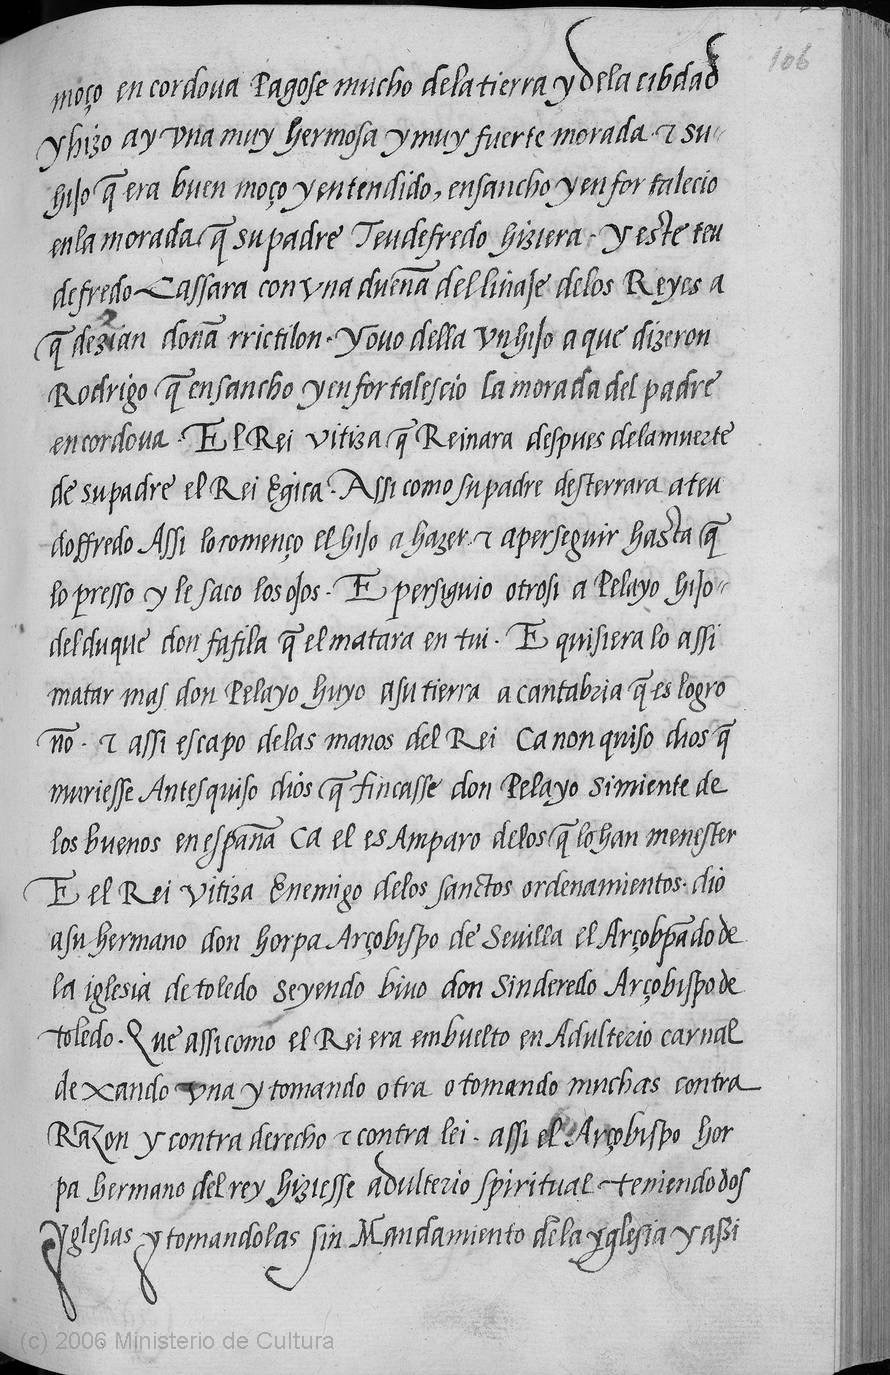 106
moço en cordova Pagose mucho dela tierra y dela cibdad
y hizo ay vna muy hermosa y muy fuerte morada · τ su
hijo q̃ era buen moço y entendido, ensancho y enfortalecio
en la morada q̃ su padre Teudefredo hiziera · Y este teu
defredo Cassara con vna dueña del linaje delos Reyes a
q̃ dezian doña rrictilon · Y ovo della vn hijo a que dizeron
Rodrigo q̃ ensancho y enfortalescio la morada del padre
en cordova · El Rei vitiza q̃ Reinara despues dela muerte
de su padre el Rei Egica · Assi como su padre desterrara a teu
doffredo Assi lo començo el hijo a hazer τ a perseguir hasta q̃
lo presso y le saco los ojos · E persiguio otrosi a Pelayo hijo
del duque don fafila q̃ el matara en tui · E quisiera lo assi
matar mas don Pelayo huyo a su tierra a cantabria q̃ es logro
ño · τ assi escapo delas manos del Rei Ca non quiso dios q̃
muriesse Antes quiso dios q̃ fincasse don Pelayo simiente de
los buenos en españa Ca el es Amparo delos q̃ lo han menester
E el Rei vitiza Enemigo delos sanctos ordenamientos · dio
a su hermano don horpa Arçobispo de Sevilla el Arçobp̃ado de
la iglesia de toledo seyendo bivo don Sinderedo Arçobispo de
toledo · Que assi como el Rei era embuelto en Adulterio carnal
dexando vna y tomando otra o tomando muchas contra
Razon y contra derecho τ contra lei · assi el Arçobispo hor
pa hermano del rey hiziesse adulterio spiritual teniendo dos
Yglesias y tomandolas sin Mandamiento dela yglesia y assi
(c) 2006 Ministerio de Cultura